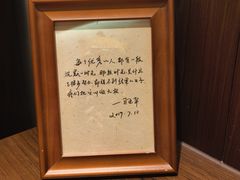 每个优秀的人，都有一段
沉默的时光，那段时光是付出
了很多努力，却得不到结果的日子，
我们把它叫做扎根。
2017.7.10